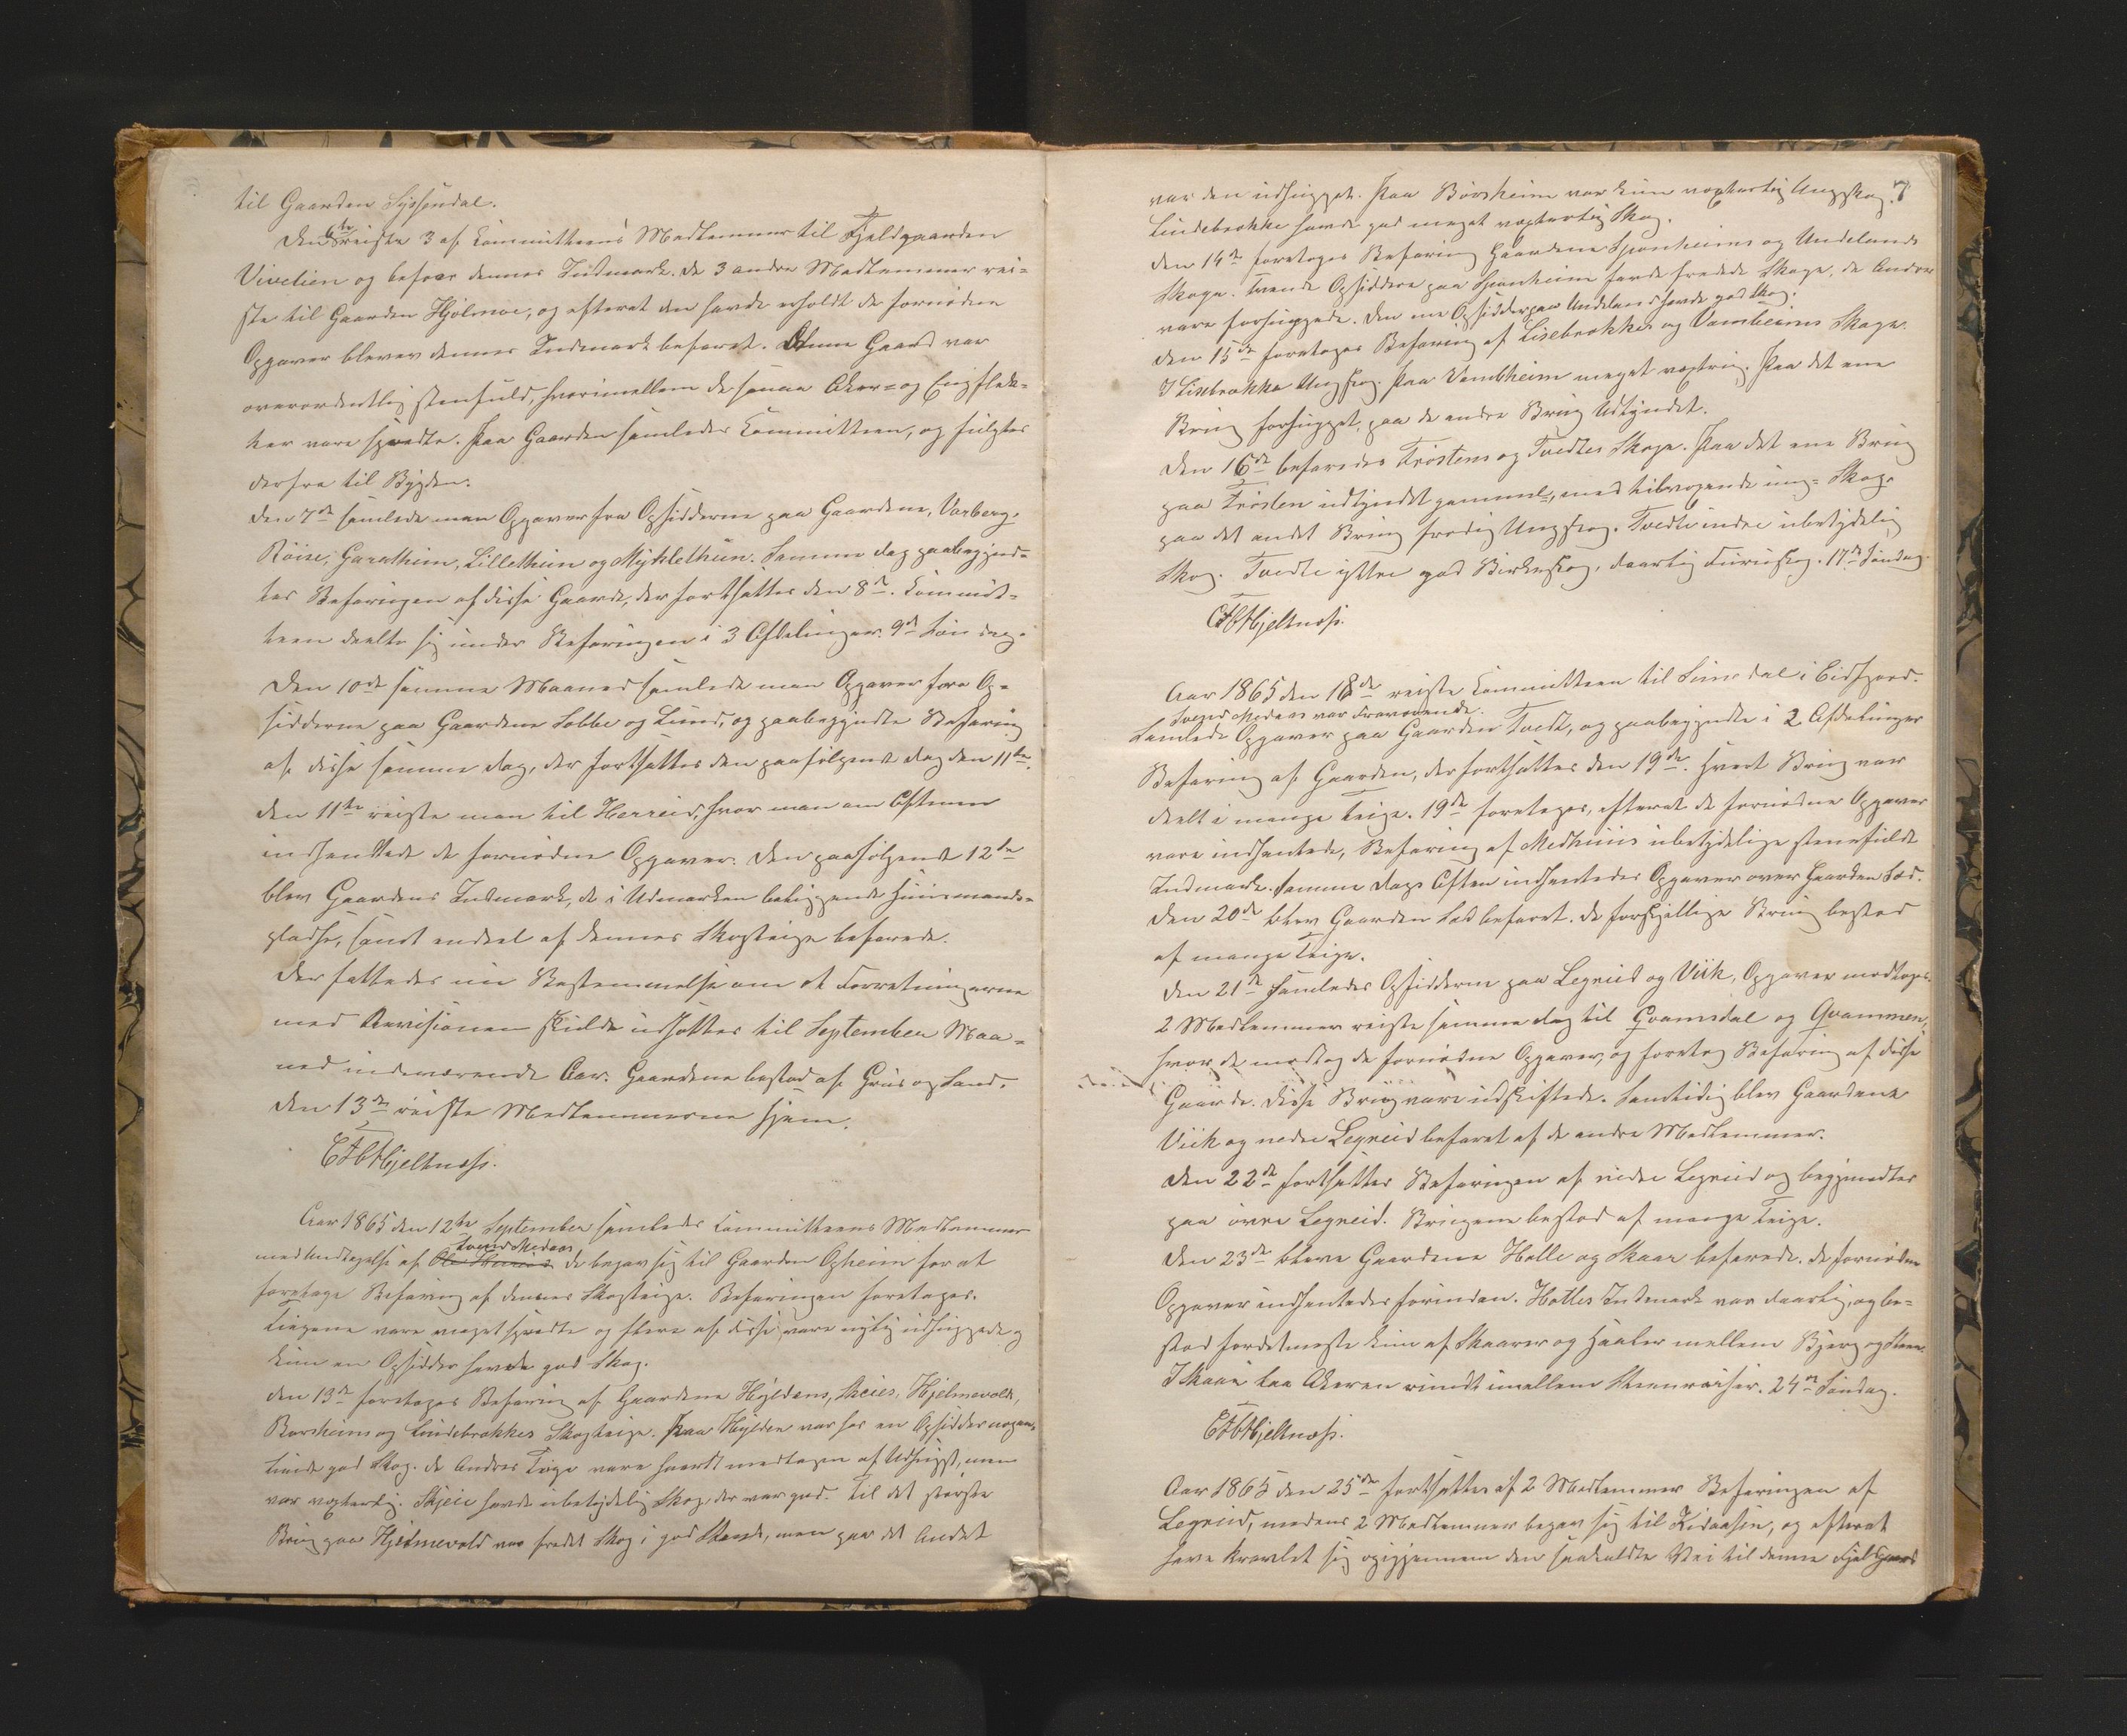 til Gaarden Syssendal.
Den 6te reiste 3 af Committeens Medlemmer til Fjeldgaarden
Vivelien og befoer dennes Indmark. De 3 andre Medlemmer rei-
ste til Gaarden Hjölmoe, og efterat den havde erholdt de fornödne
Opgaver blevev dennes Indmark befaret. Denne Gaard var
overordentlig stenfuld, hvorimellem de smaa Aker- og Engflek-
ker vare spredte. Paa Gaarden samledes Committeen, og fulgtes
derfra til Bygden.
Den 7de samlede man Opgaver fra Opsidderne paa Gaardene, Varberg,
Röise, Garatheim, Lilletheun og Mykletheun. Samme dag paabegynd-
tes Befaringen af disse Gaarde, der fortsattes den 8de. Commit-
teen deelte sig under Befaringen i 3 Afdelinger. 9de Söndag.
Den 10de samme Maaned samlede man Opgaver fra Op-
sidderne paa Gaardene Sæbbe og Lund, og paabegyndte Befaring
af disse samme dag, der fortsattes den paafölgende dag den 11te.
Den 11te reiste man til Herreid, hvor man om Aftenen
indhentede de fornödne Opgaver. Den paafölgende 12te
blev Gaardens Indmark, de i Udmarken beliggende Huusmands-
pladse, samt endeel af dennes Skogteige befarede.
Der fattedes nu Bestemmelse om at Forretningerne
med Revisionen skulde udsættes til September Maa-
ned indeværende Aar. Gaardene bestod af Gruus og Sand.
Den 13de reiste Medlemmerne hjem.
Hjeltnæss.
Aar 1865 den 12te September samledes Committeens Medlemmer
med Undtagelse af Ole Herreid Svend Medaas de begav sig til Gaarden Opheim for at
foretage Befaring af dennes Skogteige. Befaringen foretoges.
Teigene vare meget spredte og flere af disse vare nylig udhuggede og
kun en Opsidder havde god Skog.
Den 13de foretoges Befaring af Gaardene Hyldens, Skeies, Hjelmevolds,
Borsheims og Lindebrækkes Skogteige. Paa Hylden var hos en Opsidder nogen-
lunde god Skog. De Andres Teige vare haardt medtagen af Udhugst, men
var voxterlig. Skjeie havde ubetydelig Skog, der var god. Til det störste
Brug paa Hjelmevold var fredet Skog i god Stand, men paa det Andet
7
var den udhugget. Paa Börsheim var kun voxterlig Ungskog.
Lindebrække havde god meget voxterlig Skog.
Den 14de foretoges Befaring Gaardene Sponheims og Undelands
Skoge. Tvende Opsiddere paa Sponheim havde fredede Skoge, de Andres
vare forhuggede. Den ene Opsidder paa Undeland havde god Skog.
Den 15de foretoges Befaring af Lisebrækkes og Vambheims Skoge.
I Lisebrække Ungskog. Paa Vambheim meget voxtrig. Paa det ene
Brug forhugget, paa de andre Brug Udtyndet.
Den 16de befaredes Tröstens og Tvedtes Skoge. Paa det ene Brug
paa Trösten udtyndet gammel, med tilvoxende ung-Skog.
paa det andet Brug frodig Ungskog. Tvedte indre ubetydelig
Skog. Tvedte ystre god Birkeskog, daarlig Furuskog. 17de Söndag.
Hjeltnæss.
Aar 1865 den 18de reiste Committeen til Simedal i Eidfjord.
Svend Medaas var Fraværende.
Samlede Opgaver paa Gaarden Tveit, og paabegyndte i 2 Afdelinger
Befaring af Gaarden, der fortsattes den 19de. Hvert Brug var
deelt i mange Teige. 19de foretoges, efterat de fornödne Opgaver
vare indhentede, Befaring af Medhuus ubetydelige steenfulde
Indmark. Samme Dags Aften indhentedes Opgaver over Gaarden Sæd.
Den 20de blev Gaarden Sæd befaret. De forskjellige Brug bestod
af mange Teige.
Den 21de samledes Opsidderne paa Legreid og Viik, Opgaver modtoges.
2 Medlemmer reiste samme dag til Qvamsdal og Qvammen,
hvor de modtog de fornödne Opgaver, og foretog Befaring af disse
Gaarde. Disse Brug vare udskiftede. Samtidig blev Gaardene
Viik og nedre Legreid befaret af de andre Medlemmer.
Den 22de fortsattes Befaringen af nedre Legreid og begyndtes
paa övre Legreid. Brugene bestod af mange Teige.
Den 23de bleve Gaardene Hölle og Skaar befarede. De fornödne
Opgaver indhentedes forinden. Hölles Indmark var daarlig, og be-
stod fordetmeste kun af Skaarer og Huler mellem Bjerg og Steen.
I Skaar laa Akeren rundt imellem Steenröiser. 24de Söndag.
Hjeltnæss.
Aar 1865 den 25de fortsattes af 2 Medlemmer Befaringen af
Legreid, medens 2 Medlemmer begav sig til Kidaasen, og efterat
have kravlet sig opigjennem den saakaldte Vei til denne Fjeldgaard